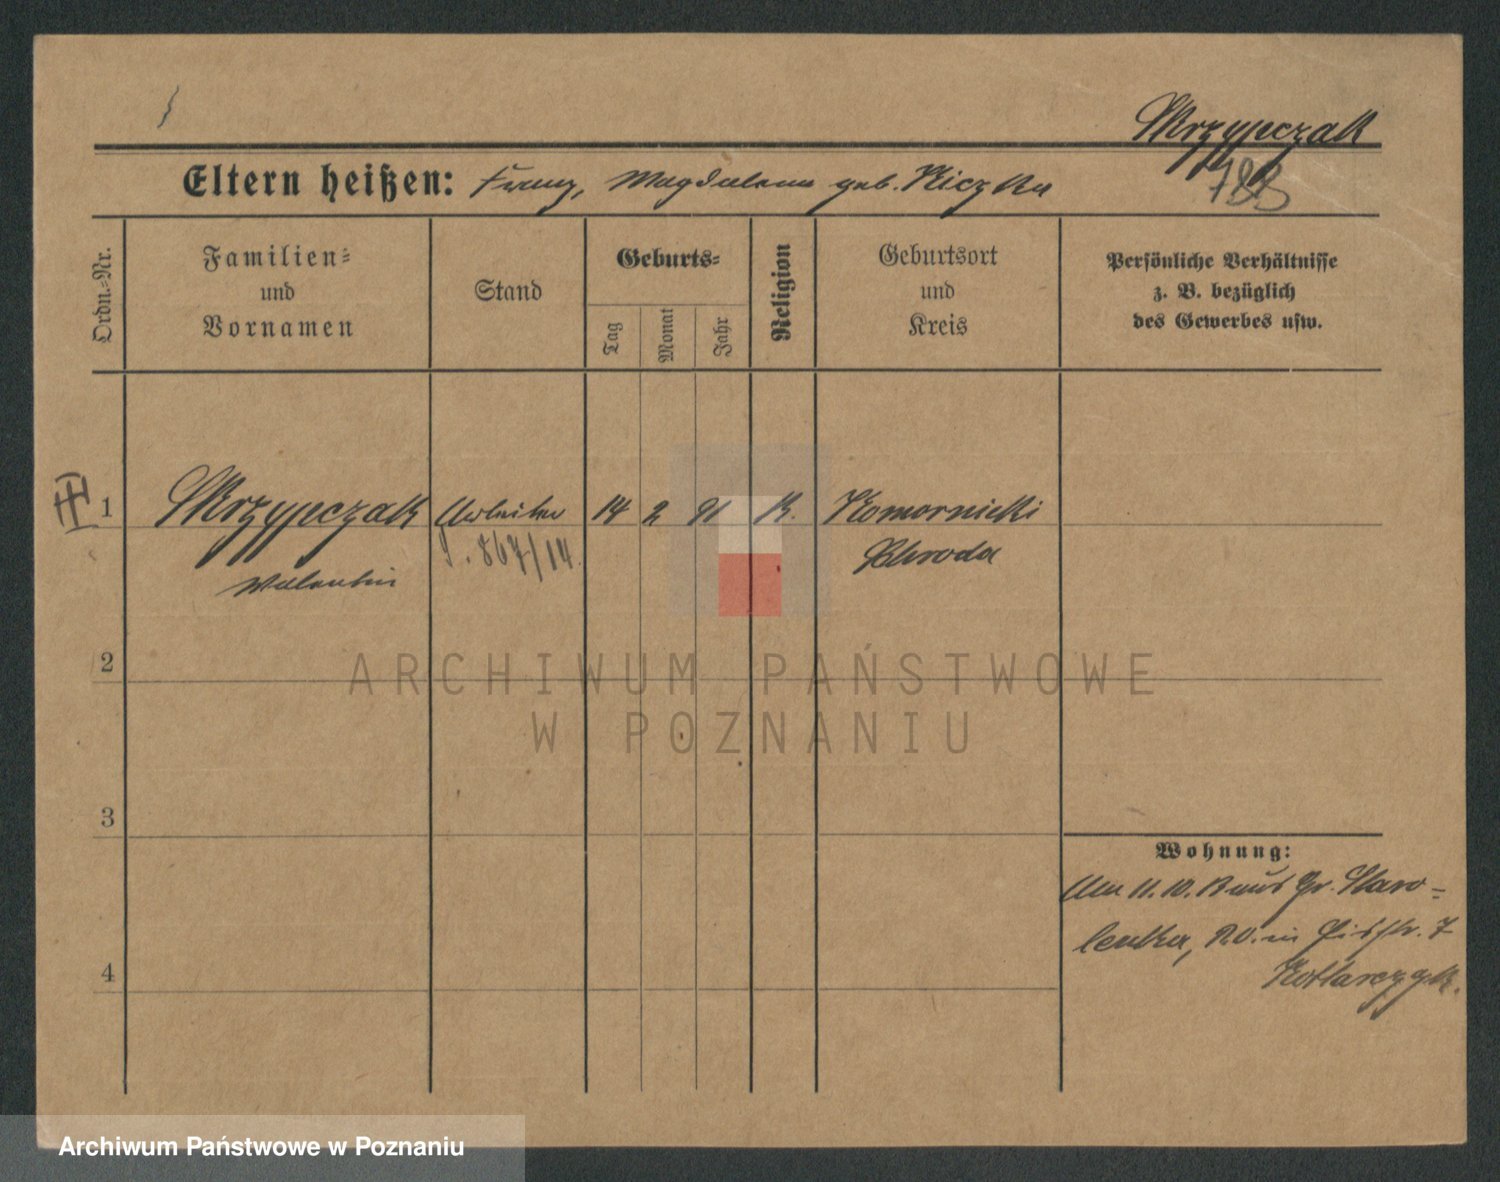 Skrzypczak
Eltern heißen: Franz, Magdalena geb. Kiczka
788
Ordn.-Nr.
Familien-
und
Vornamen
Stand
Geburts-
Tag
Monat
Jahr
Religion
Geburtsort
und
Kreis
Persönliche Verhältnisse
z. B. bezüglich
des Gewerbes usw.
1
Skrzypczak
Valentin
Arbeiter
867/14
14
2
91
K.
Komornicki
Schroda
2
ARCHIWUM PAŃSTWOWE
W POZNANIU
3
4
Wohnung:
Am 11.10.13 aus Gr. Staro-
lenka, R.O. in 7
Kotlarczyk.
Archiwum Państwowe w Poznaniu